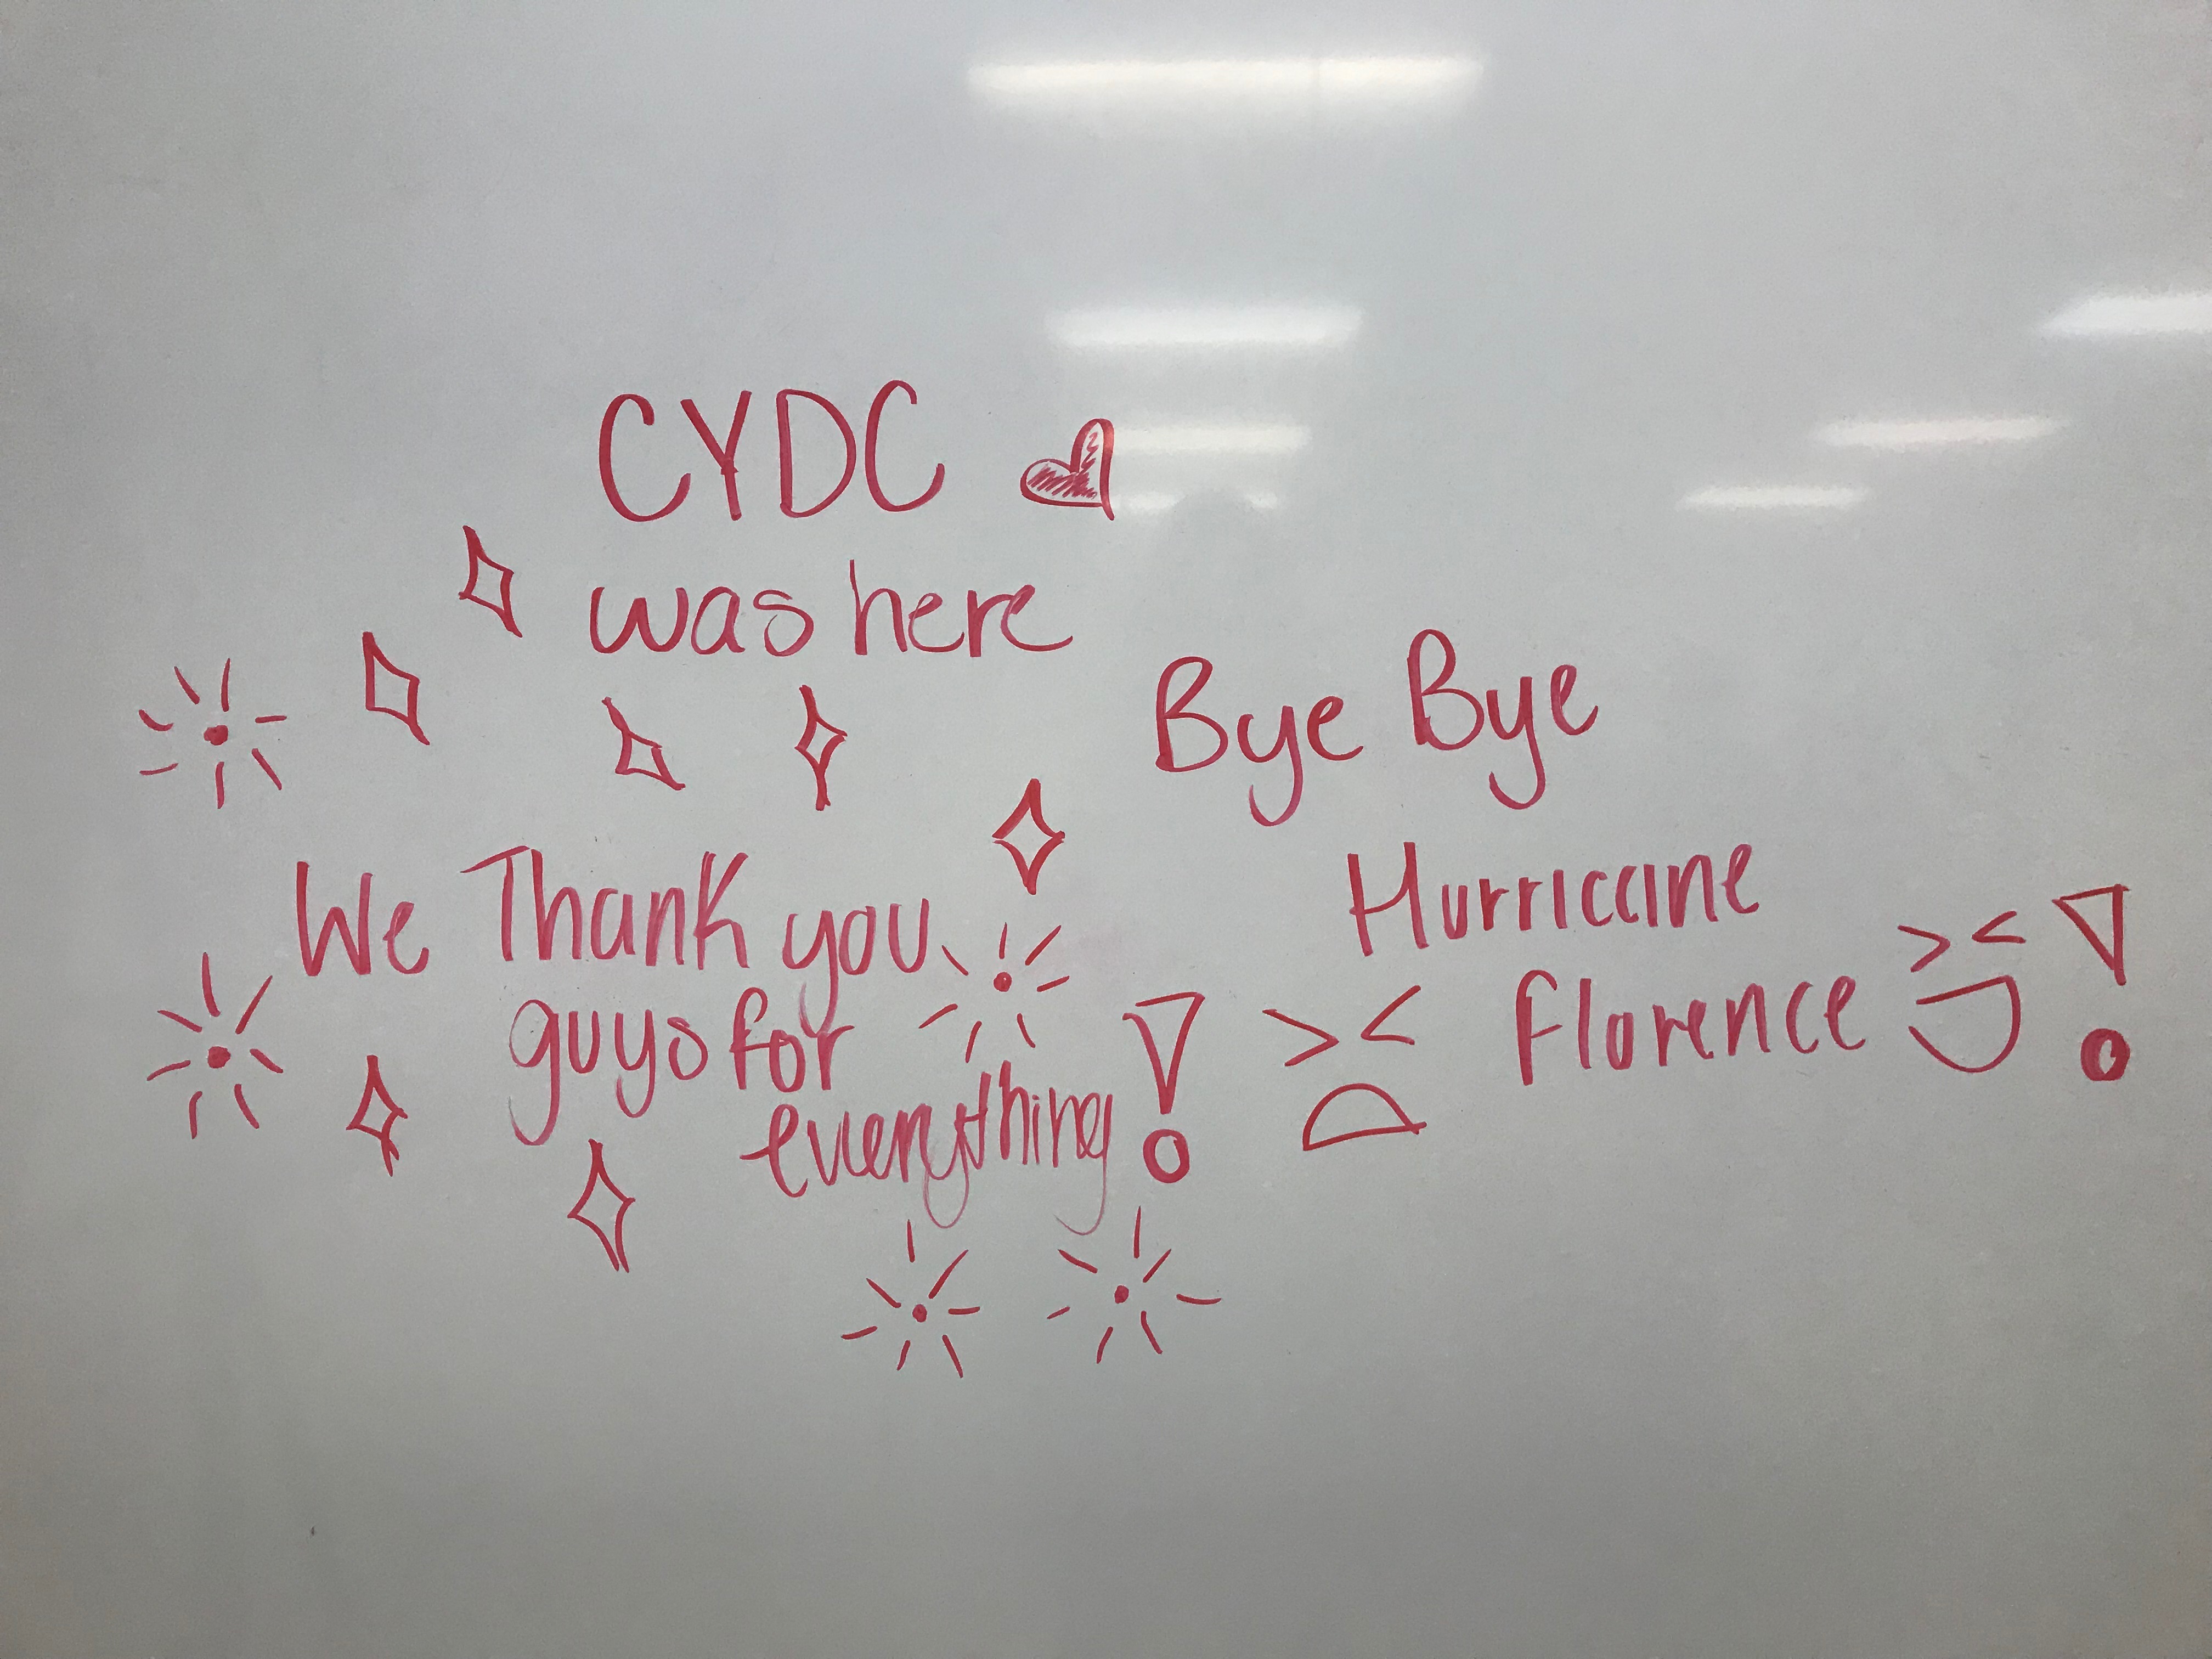 CYDC
was here
We Thank you
guys for
everything!
Bye Bye
Hurricane
Florence!